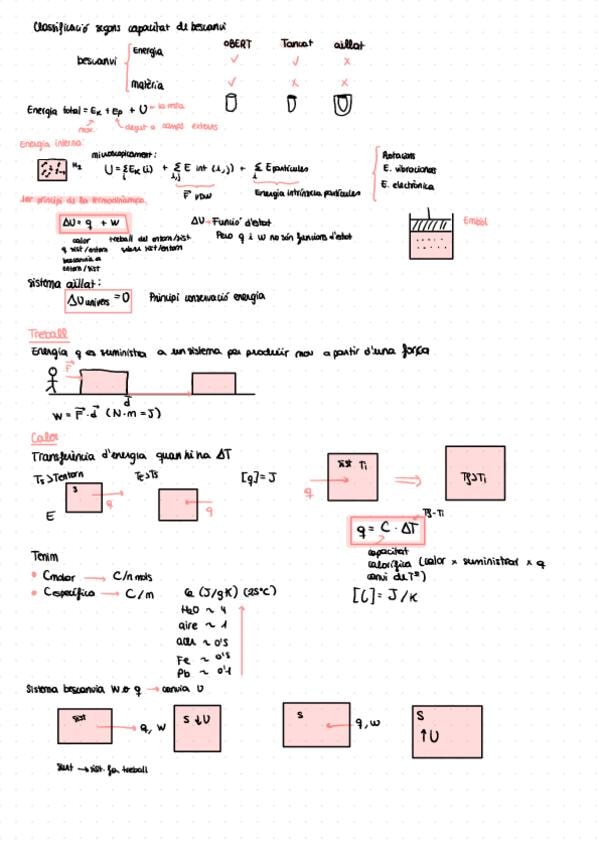 Classificació segons capacitat de bescanvi
OBERT Tancat aïllat
bescanvi
Energia ✓ ✓ x
matèria ✓ x x
Energia total = Ek + Ep + U
degut a camps externs
Energia interna:
microscopicament:
H2
U = Σ Ek (i) + Σ E int (i,j) + Σ E partícules
i i,j i
F VDW
Energia intrínseca partícules
Rotacions
E. vibracions
E. electrònica
1er principi de la termodinàmica.
ΔU = q + w
calor
q sist/entorn
bescanvia a
entorn/sist
treball del entorn/sist
sobre sist/entorn
ΔU → Funció d'estat
Però q i w no són funcions d'estat
Embòl
Sistema aïllat:
ΔU univers = 0
Principi conservació energia
Treball
Energia q es suministra a un sistema per produïr mov a partir d'una força
F
d
W = F · d (N·m = J)
Calor
Transferència d'energia quan hi ha ΔT
Ts > Tentorn
TE > Ts
[q] = J
S
q
q
E
q
Sist Ti
Tf > Ti
Tf - Ti
q = C · ΔT
capacitat
calorífica (calor x suministrar x q
canvi de Tª)
[C] = J/K
Tenim
Cmolar → C/n mols
Cespecífica → C/m
Ce (J/gK) (25ºC)
H2O ~ 4
aire ~ 1
acer ~ 0'5
Fe ~ 0'5
Pb ~ 0'1
Sistema bescanvia W o q → canvia U
sist
q, W
S ↓U
S
q, w
S
↑U
surt → sist. fa treball